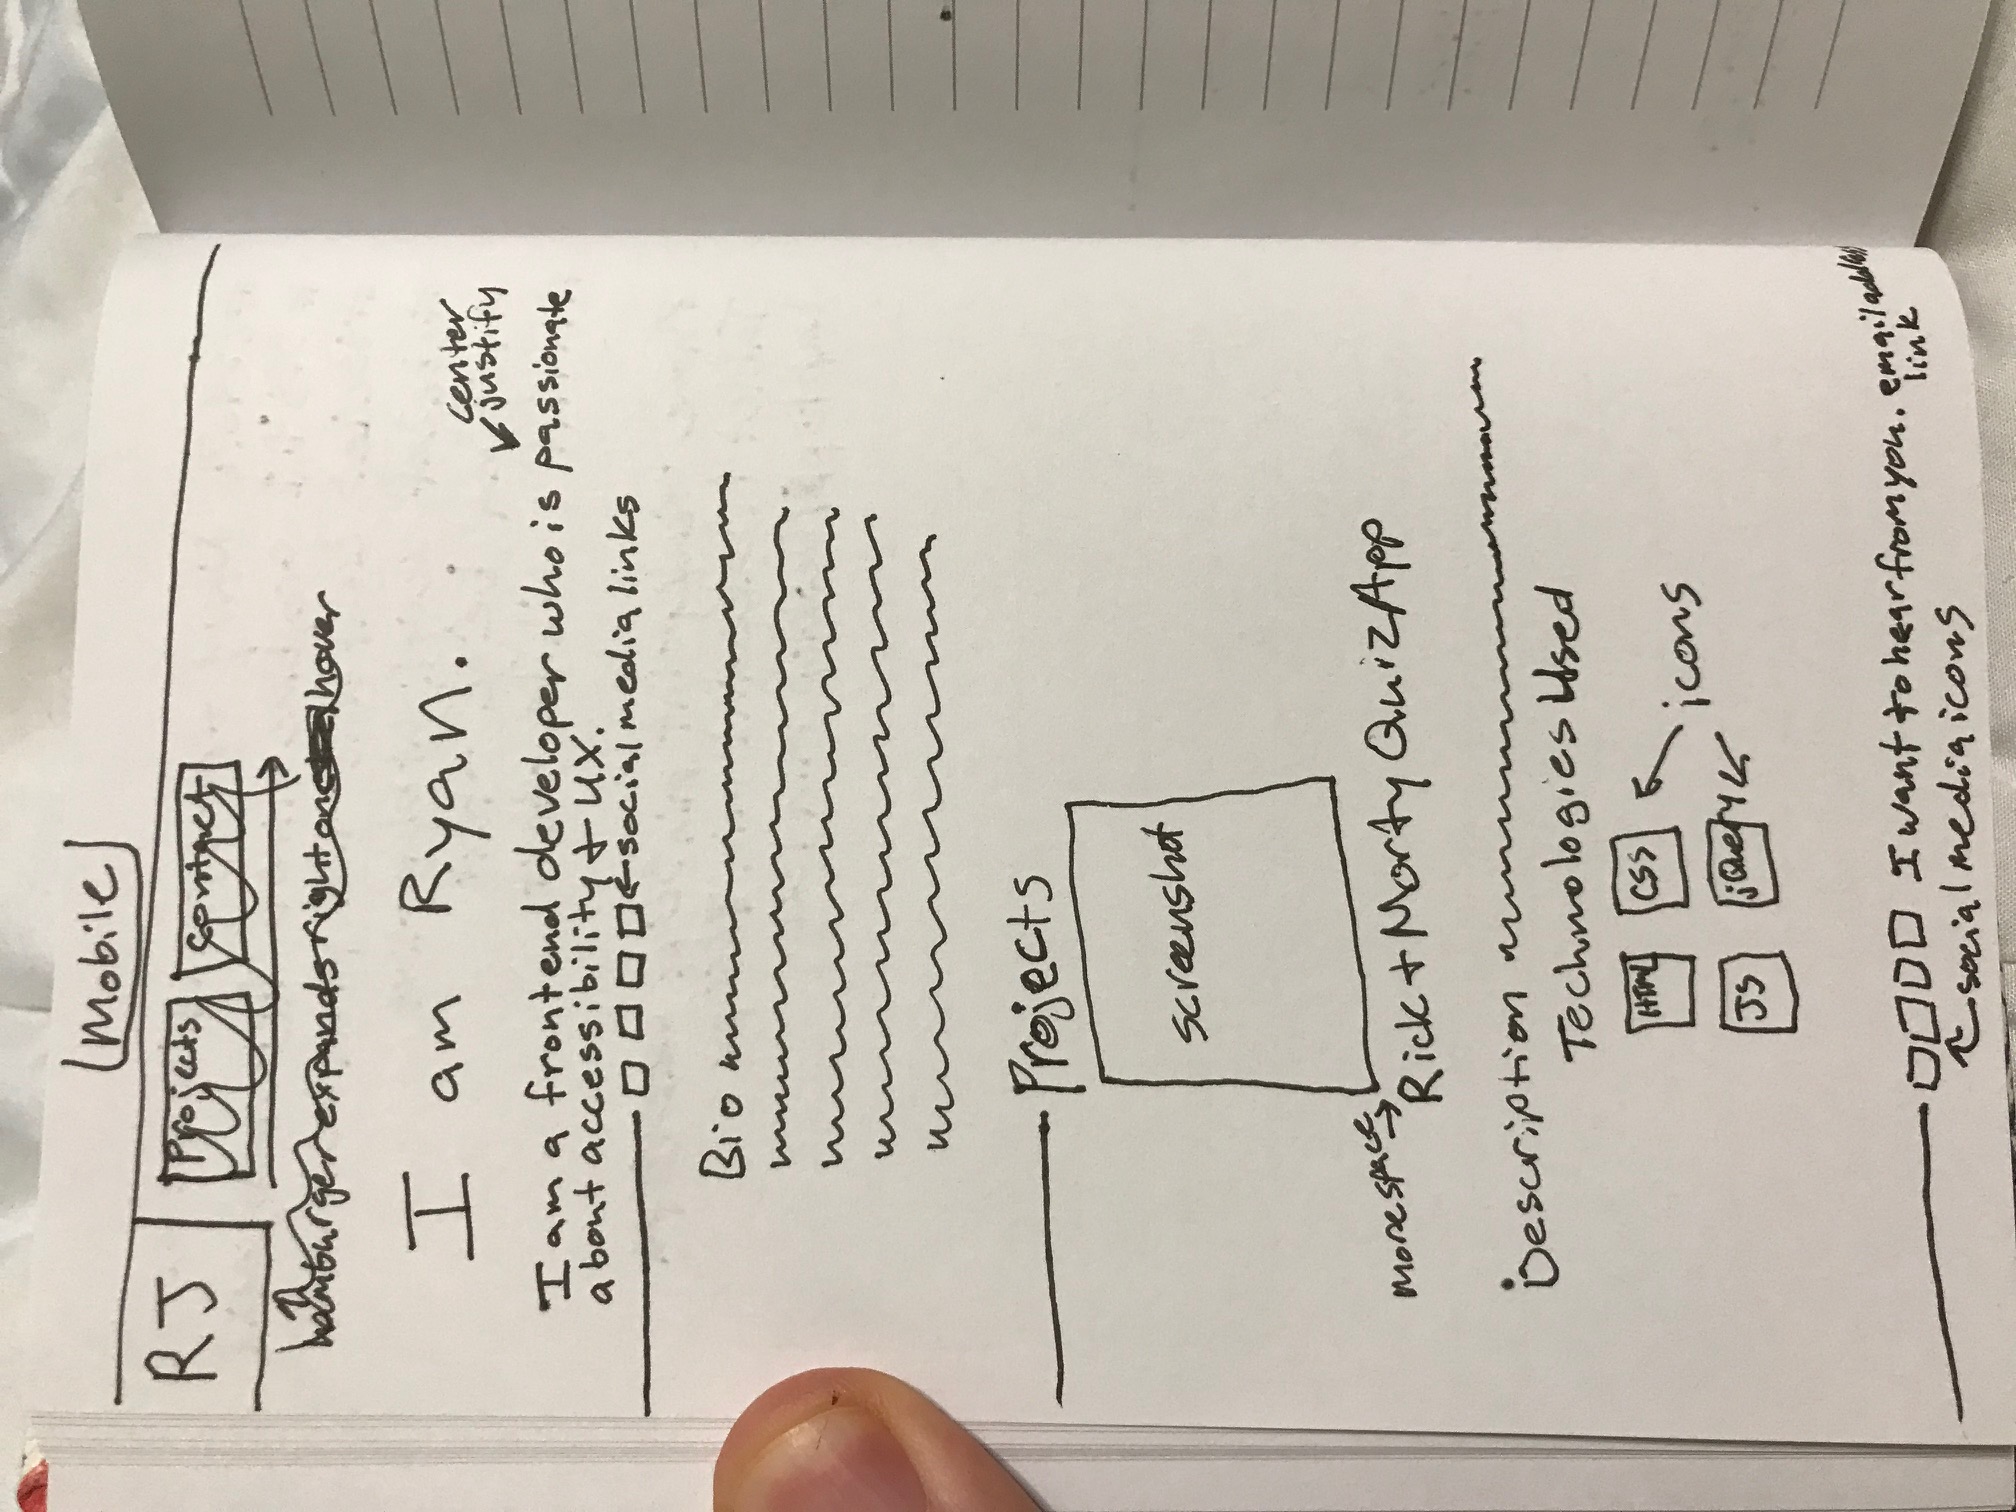 Mobile
RJ
Projects
contact
hamburger expands right on hover
I am Ryan.
center
justify
I am a frontend developer who is passionate
about accessibility + UX.
social media links
Bio
Projects
screenshot
more space
Rick + Morty Quiz App
Description
Technologies Used
HTML
CSS
icons
JS
jQuery
I want to hear from you. email address
link
social media icons